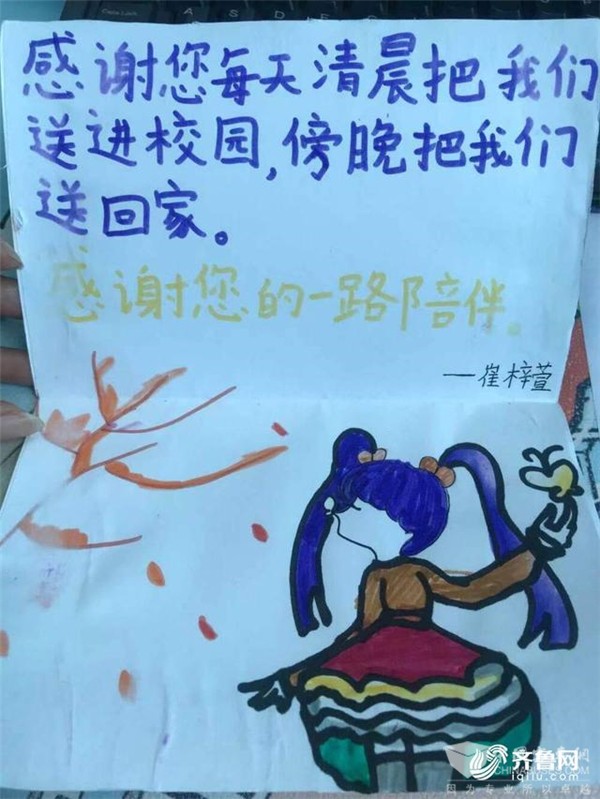 感谢您每天清晨把我们
送进校园,傍晚把我们
送回家。
感谢您的一路陪伴。
—崔梓萱
齐鲁网
iqilu.com
因为专业所以卓越